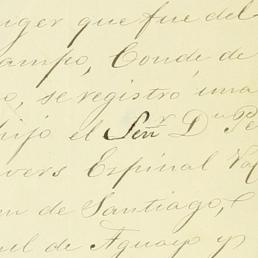 uger que fue del
ampo, Conde de
o, se registro una
hijo el Senr. Dn. Pe
vers Espinal Val
en de Santiago, C
uel de Aguayo y